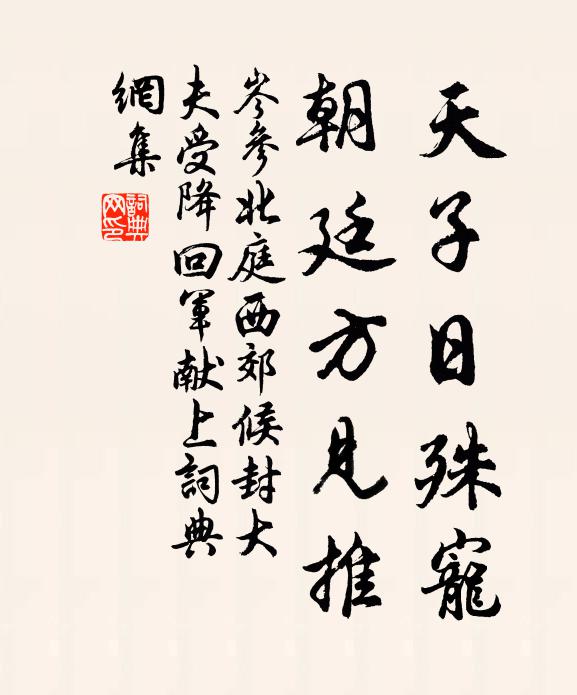 天子日殊寵
朝廷方見推
岑參北庭西郊候封大
夫受降回軍献上詞典
網集
詞典
网印